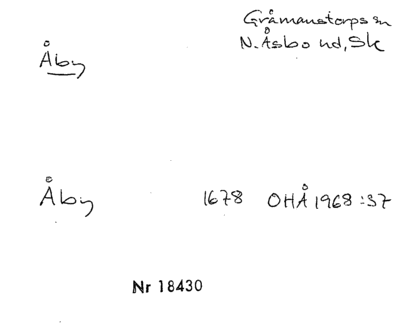 Gråmanstorps sn
Åby N. Åsbo hd, Sk
Åby 1678 OHÅ 1968:37
Nr 18430